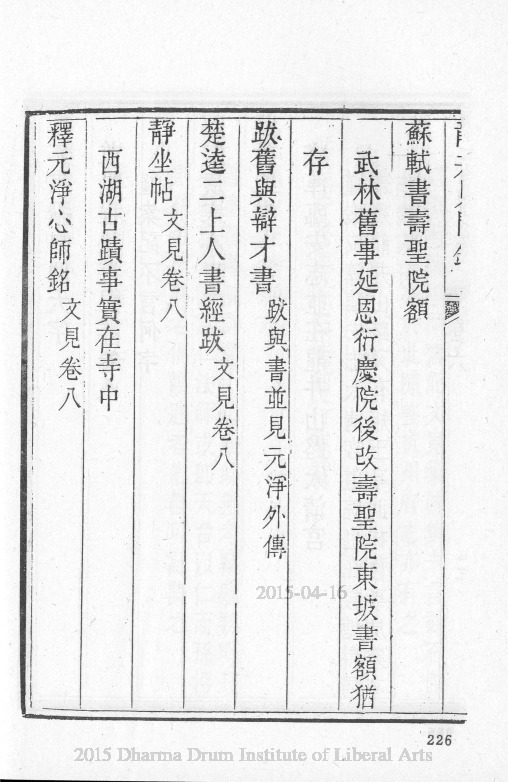 蘇軾書壽聖院額
武林舊事延恩衍慶院後改壽聖院東坡書額猶
存
跋舊與辯才書 跋與書並見元淨外傳
楚逵二上人書經跋 文見卷八
靜坐帖 文見卷八
西湖古蹟事實在寺中
釋元淨心師銘 文見卷八
2015-04-16
226
2015 Dharma Drum Institute of Liberal Arts